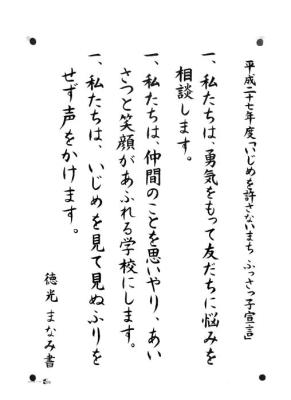 平成二十七年度「いじめを許さないまち ふっさっ子宣言」
一、私たちは、勇気をもって友だちに悩みを
相談します。
一、私たちは、仲間のことを思いやり、あい
さつと笑顔があふれる学校にします。
一、私たちは、いじめを見て見ぬふりを
せず声をかけます。
徳光 まなみ書